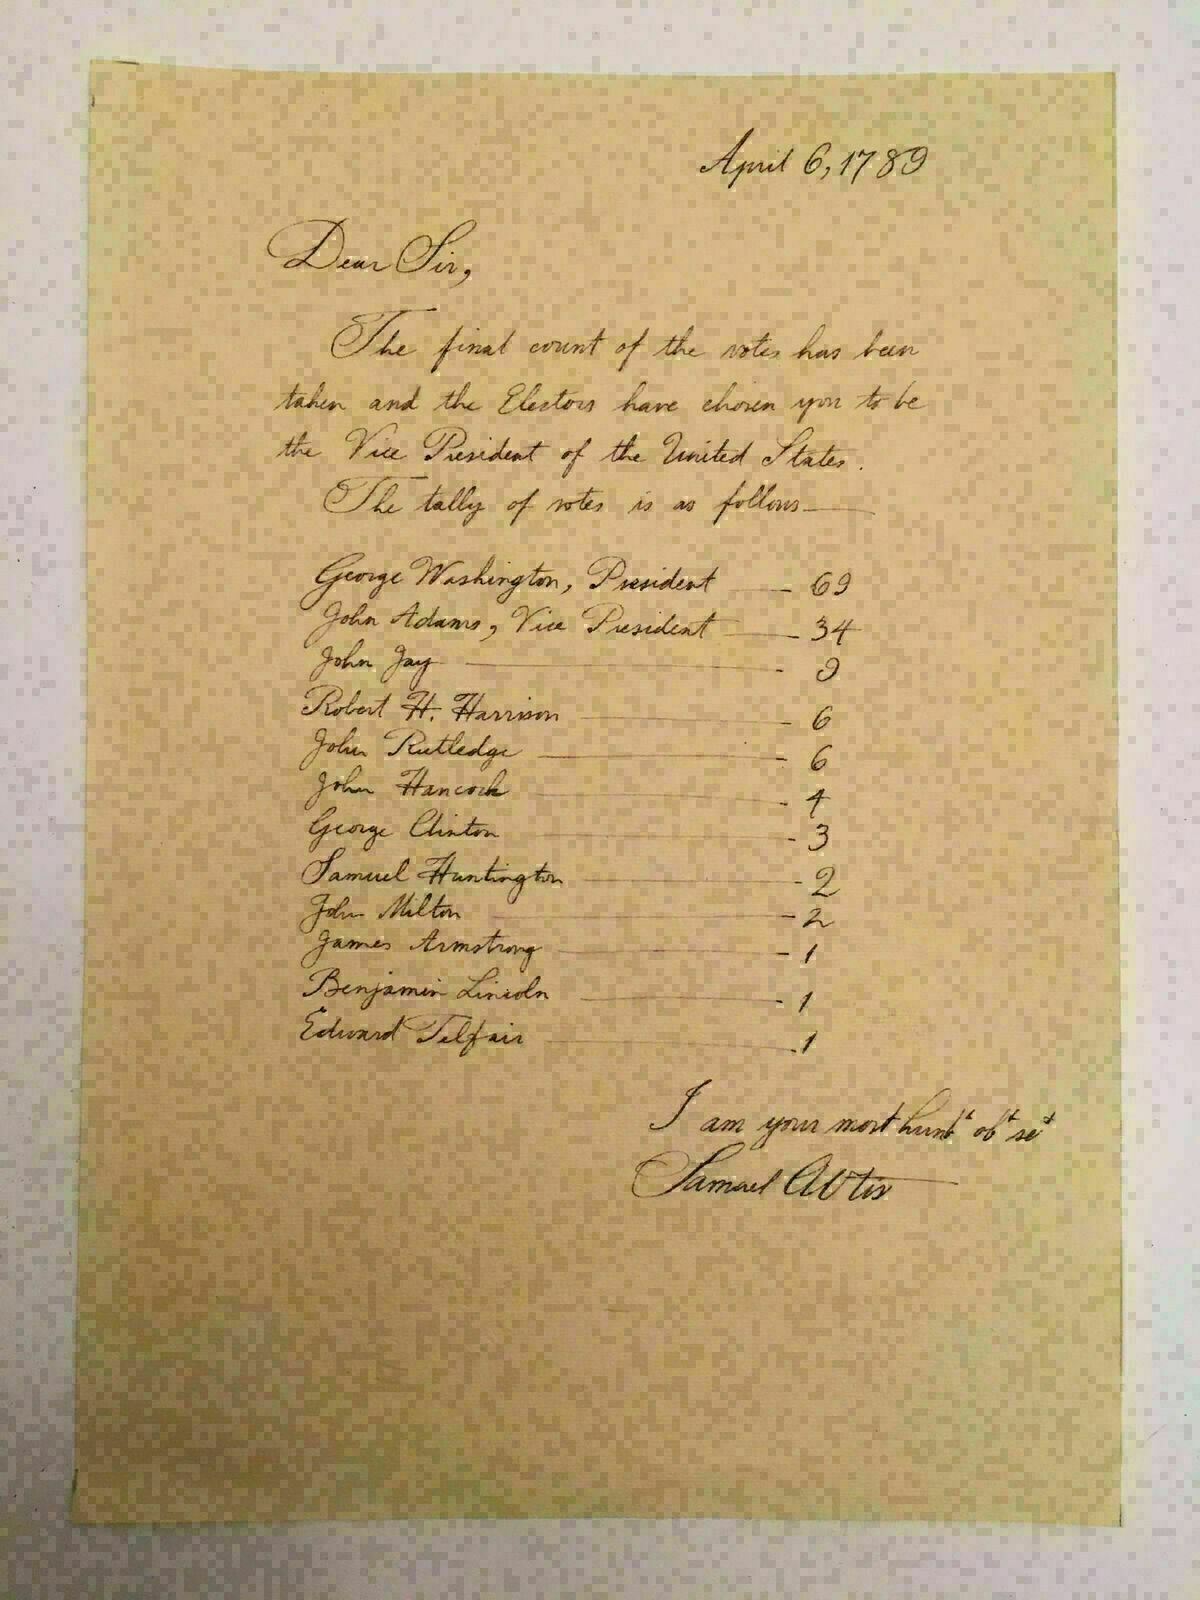 April 6, 1789
Dear Sir,
The final count of the votes has been
taken and the Electors have chosen you to be
the Vice President of the United States.
The tally of votes is as follows—
George Washington, President — 69
John Adams, Vice President — 34
John Jay — 9
Robert H. Harrison — 6
John Rutledge — 6
John Hancock — 4
George Clinton — 3
Samuel Huntington — 2
John Milton — 2
James Armstrong — 1
Benjamin Lincoln — 1
Edward Telfair — 1
I am your most humb^t ob^t se^t
Samuel